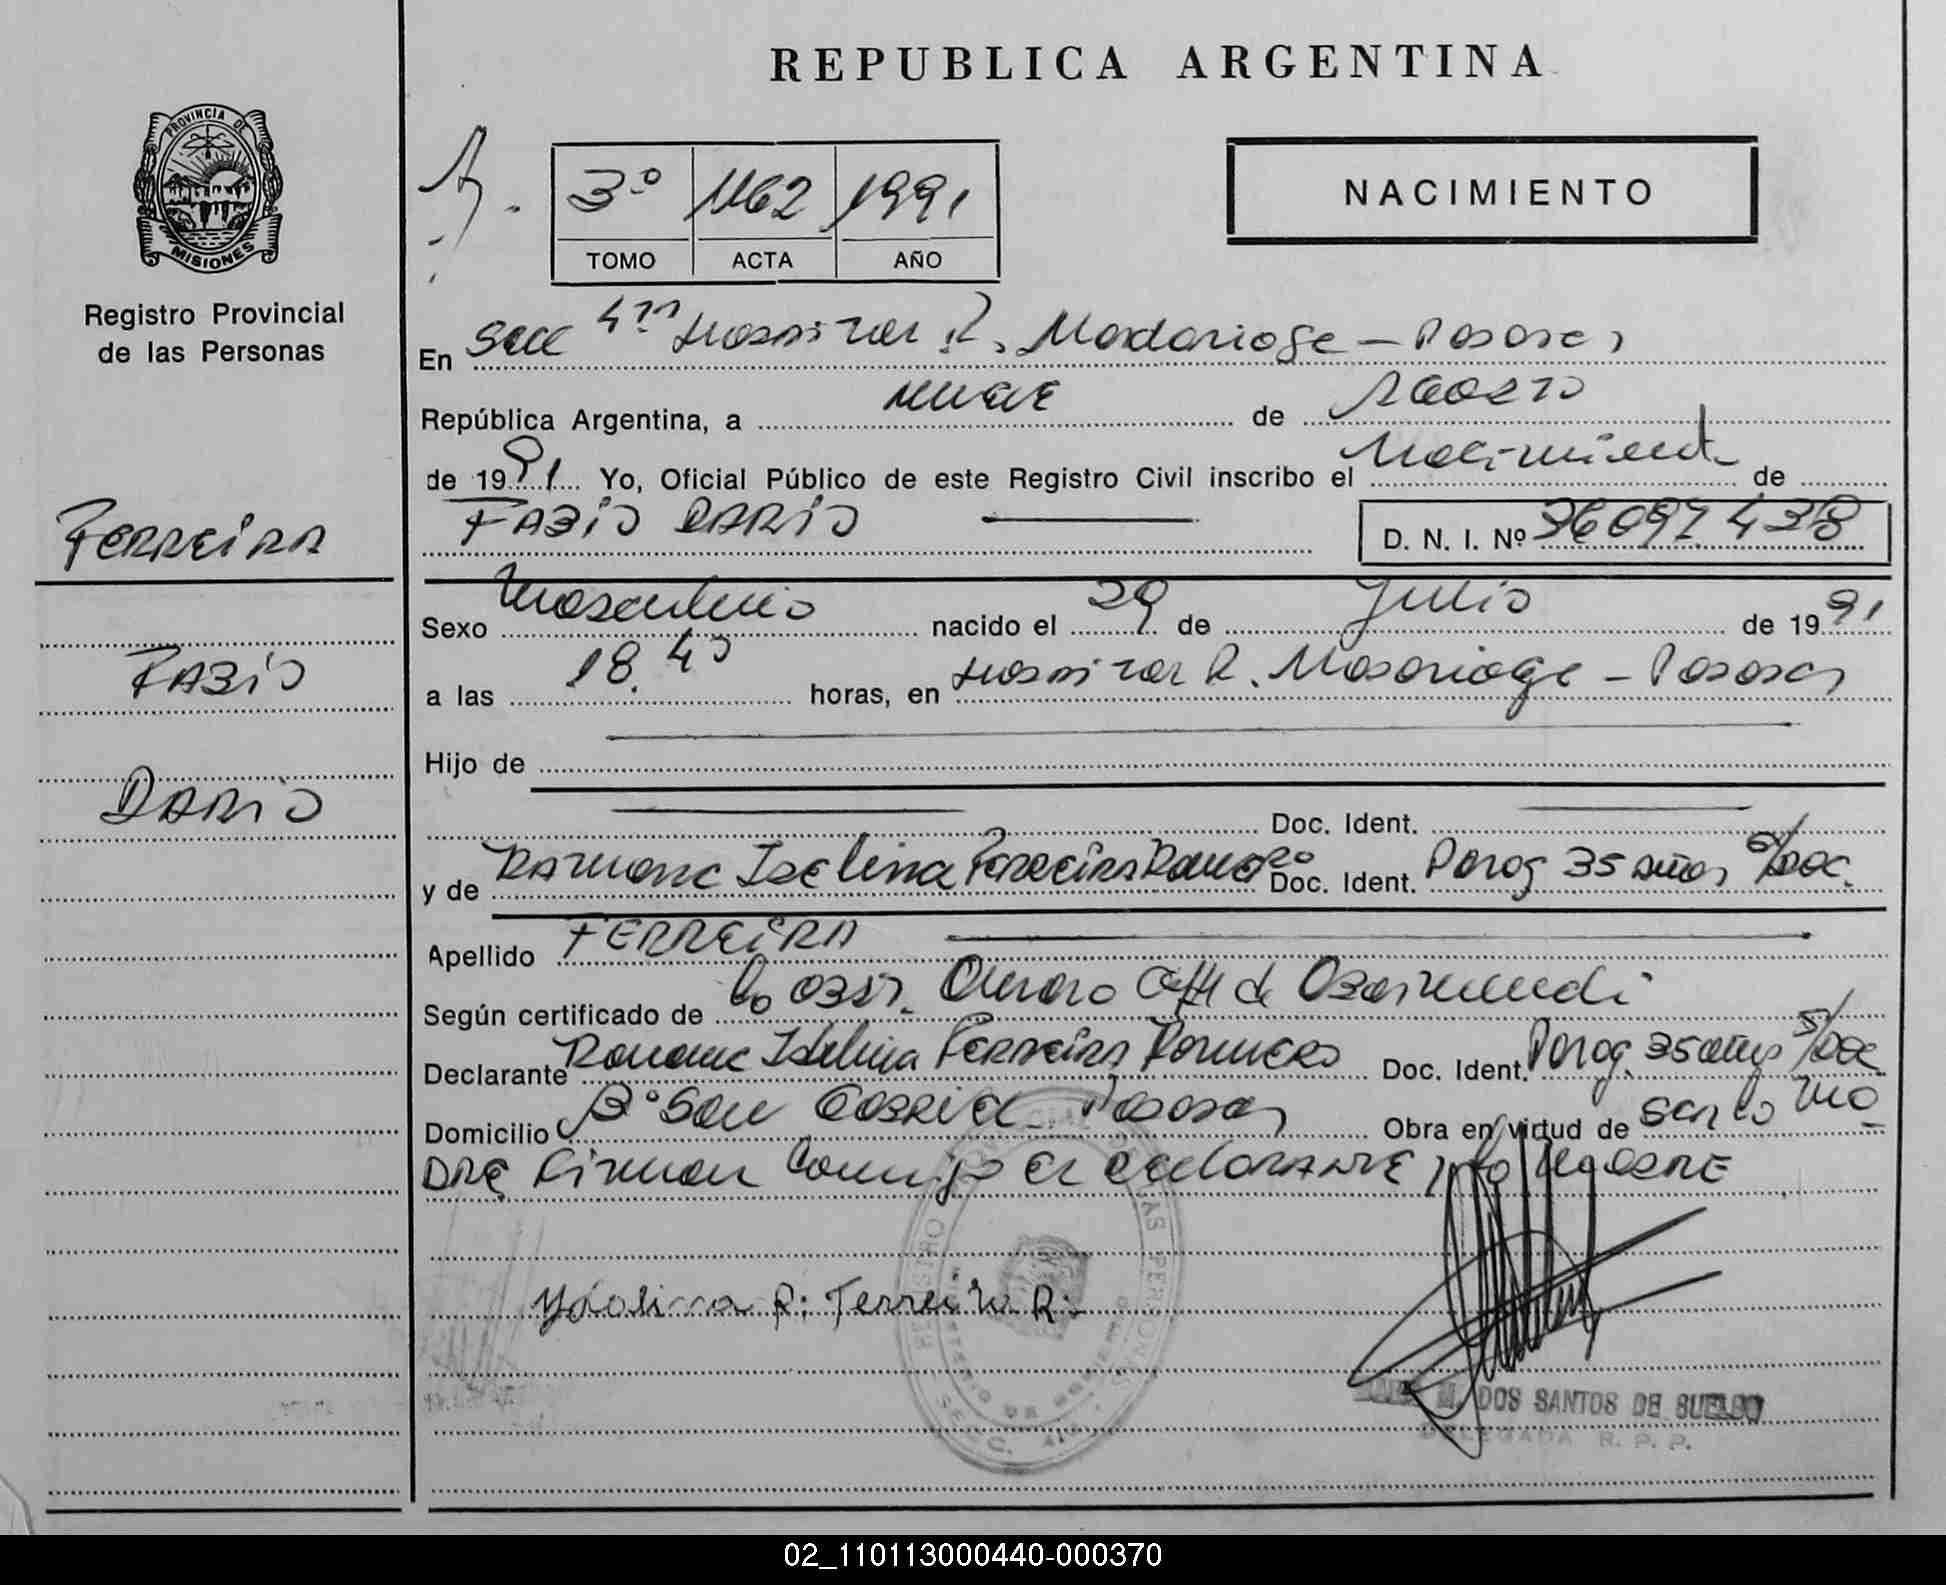 REPUBLICA ARGENTINA
PROVINCIA DE
MISIONES
Registro Provincial
de las Personas
3º 1162 1991
TOMO ACTA AÑO
NACIMIENTO
En Secc 4ta Hospital R. Madariaga - Posadas
República Argentina, a nueve de Agosto
de 1991 Yo, Oficial Público de este Registro Civil inscribo el Nacimiento de
Ferreira
FABIO DARIO D. N. I. Nº 36097438
Sexo Masculino nacido el 29 de Julio de 1991
Fabio
a las 18.45 horas, en Hospital R. Madariaga - Posadas
Hijo de
Dario
Doc. Ident.
y de Ramona Idelina Ferreira Romero Doc. Ident. Parag 35 años s/doc.
Apellido FERREIRA
Según certificado de la obst.
Declarante Ramona Idelina Ferreira Romero Doc. Ident. Parag. 35 años s/doc
Domicilio Bº San Gabriel Posadas Obra en virtud de ser la ma
dre Firman Conmigo el declarante
Ydolina R. Ferreira R.
M. DOS SANTOS DE
DELEGADA R. P. P.
02_110113000440-000370